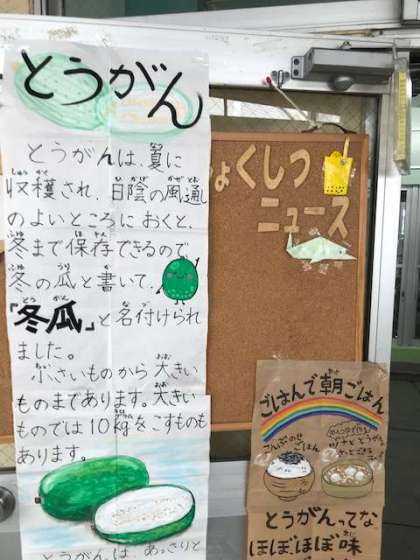 とうがん
とうがんは、夏に
収穫され、日陰の風通し
のよいところにおくと、
冬まで保存できるので
冬の瓜と書いて、
「冬瓜」と名付けられ
ました。
小さいものから大きい
ものまであります。大きい
ものでは10kgをこすものも
あります。
とうがんは、あっさりと
ょくしつ
ニュース
ごはんで朝ごはん
こんぶのせ
ごはん
ツナととうがん
とうがんってな
ほぼほぼ味